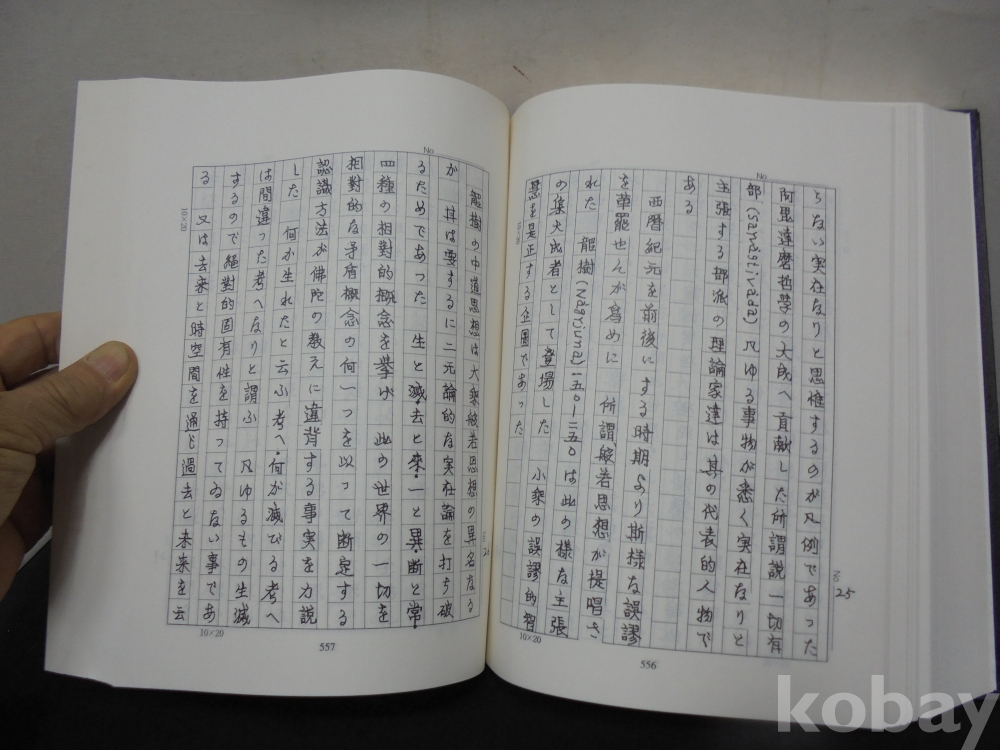 No.
No. 25
らない実在なりと思惟するのが凡例であった
阿毘達磨哲学の大成へ貢献した所謂説一切有
部(Sarvāstivāda)凡ゆる事物が悉く実在なりと
主張する部派の理論家達は其の代表的人物で
ある
西暦紀元を前後にする時期より斯様な誤謬
を革罷せんが為めに 所謂般若思想が提唱さ
れた 龍樹(Nāgārjuna)一五〇-二五〇は此の様な主張
の集大成者として登場した 小乘の誤謬的智
慧を是正する企圖であった
10×20
10×20
556
No.
龍樹の中道思想は大乘般若思想の異名なる
が 其は要するに二元論的な実在論を打ち破
るためであった 生と滅・去と來・一と異・断と常・
四種の相對的概念を挙げ 此の世界の一切を
相對的な矛盾概念の何一つを以って断定する
認識方法が佛陀の教えに違背する事実を力説
した 何が生れたと云ふ考へ・何が滅びる考へ
は間違った考へなりと謂ふ 凡ゆるもの生滅
するので絕對的固有性を持ってゐない事であ
る 又は去来と時空間を通じ過去と未来を云
10×20
10×20
557
kobay